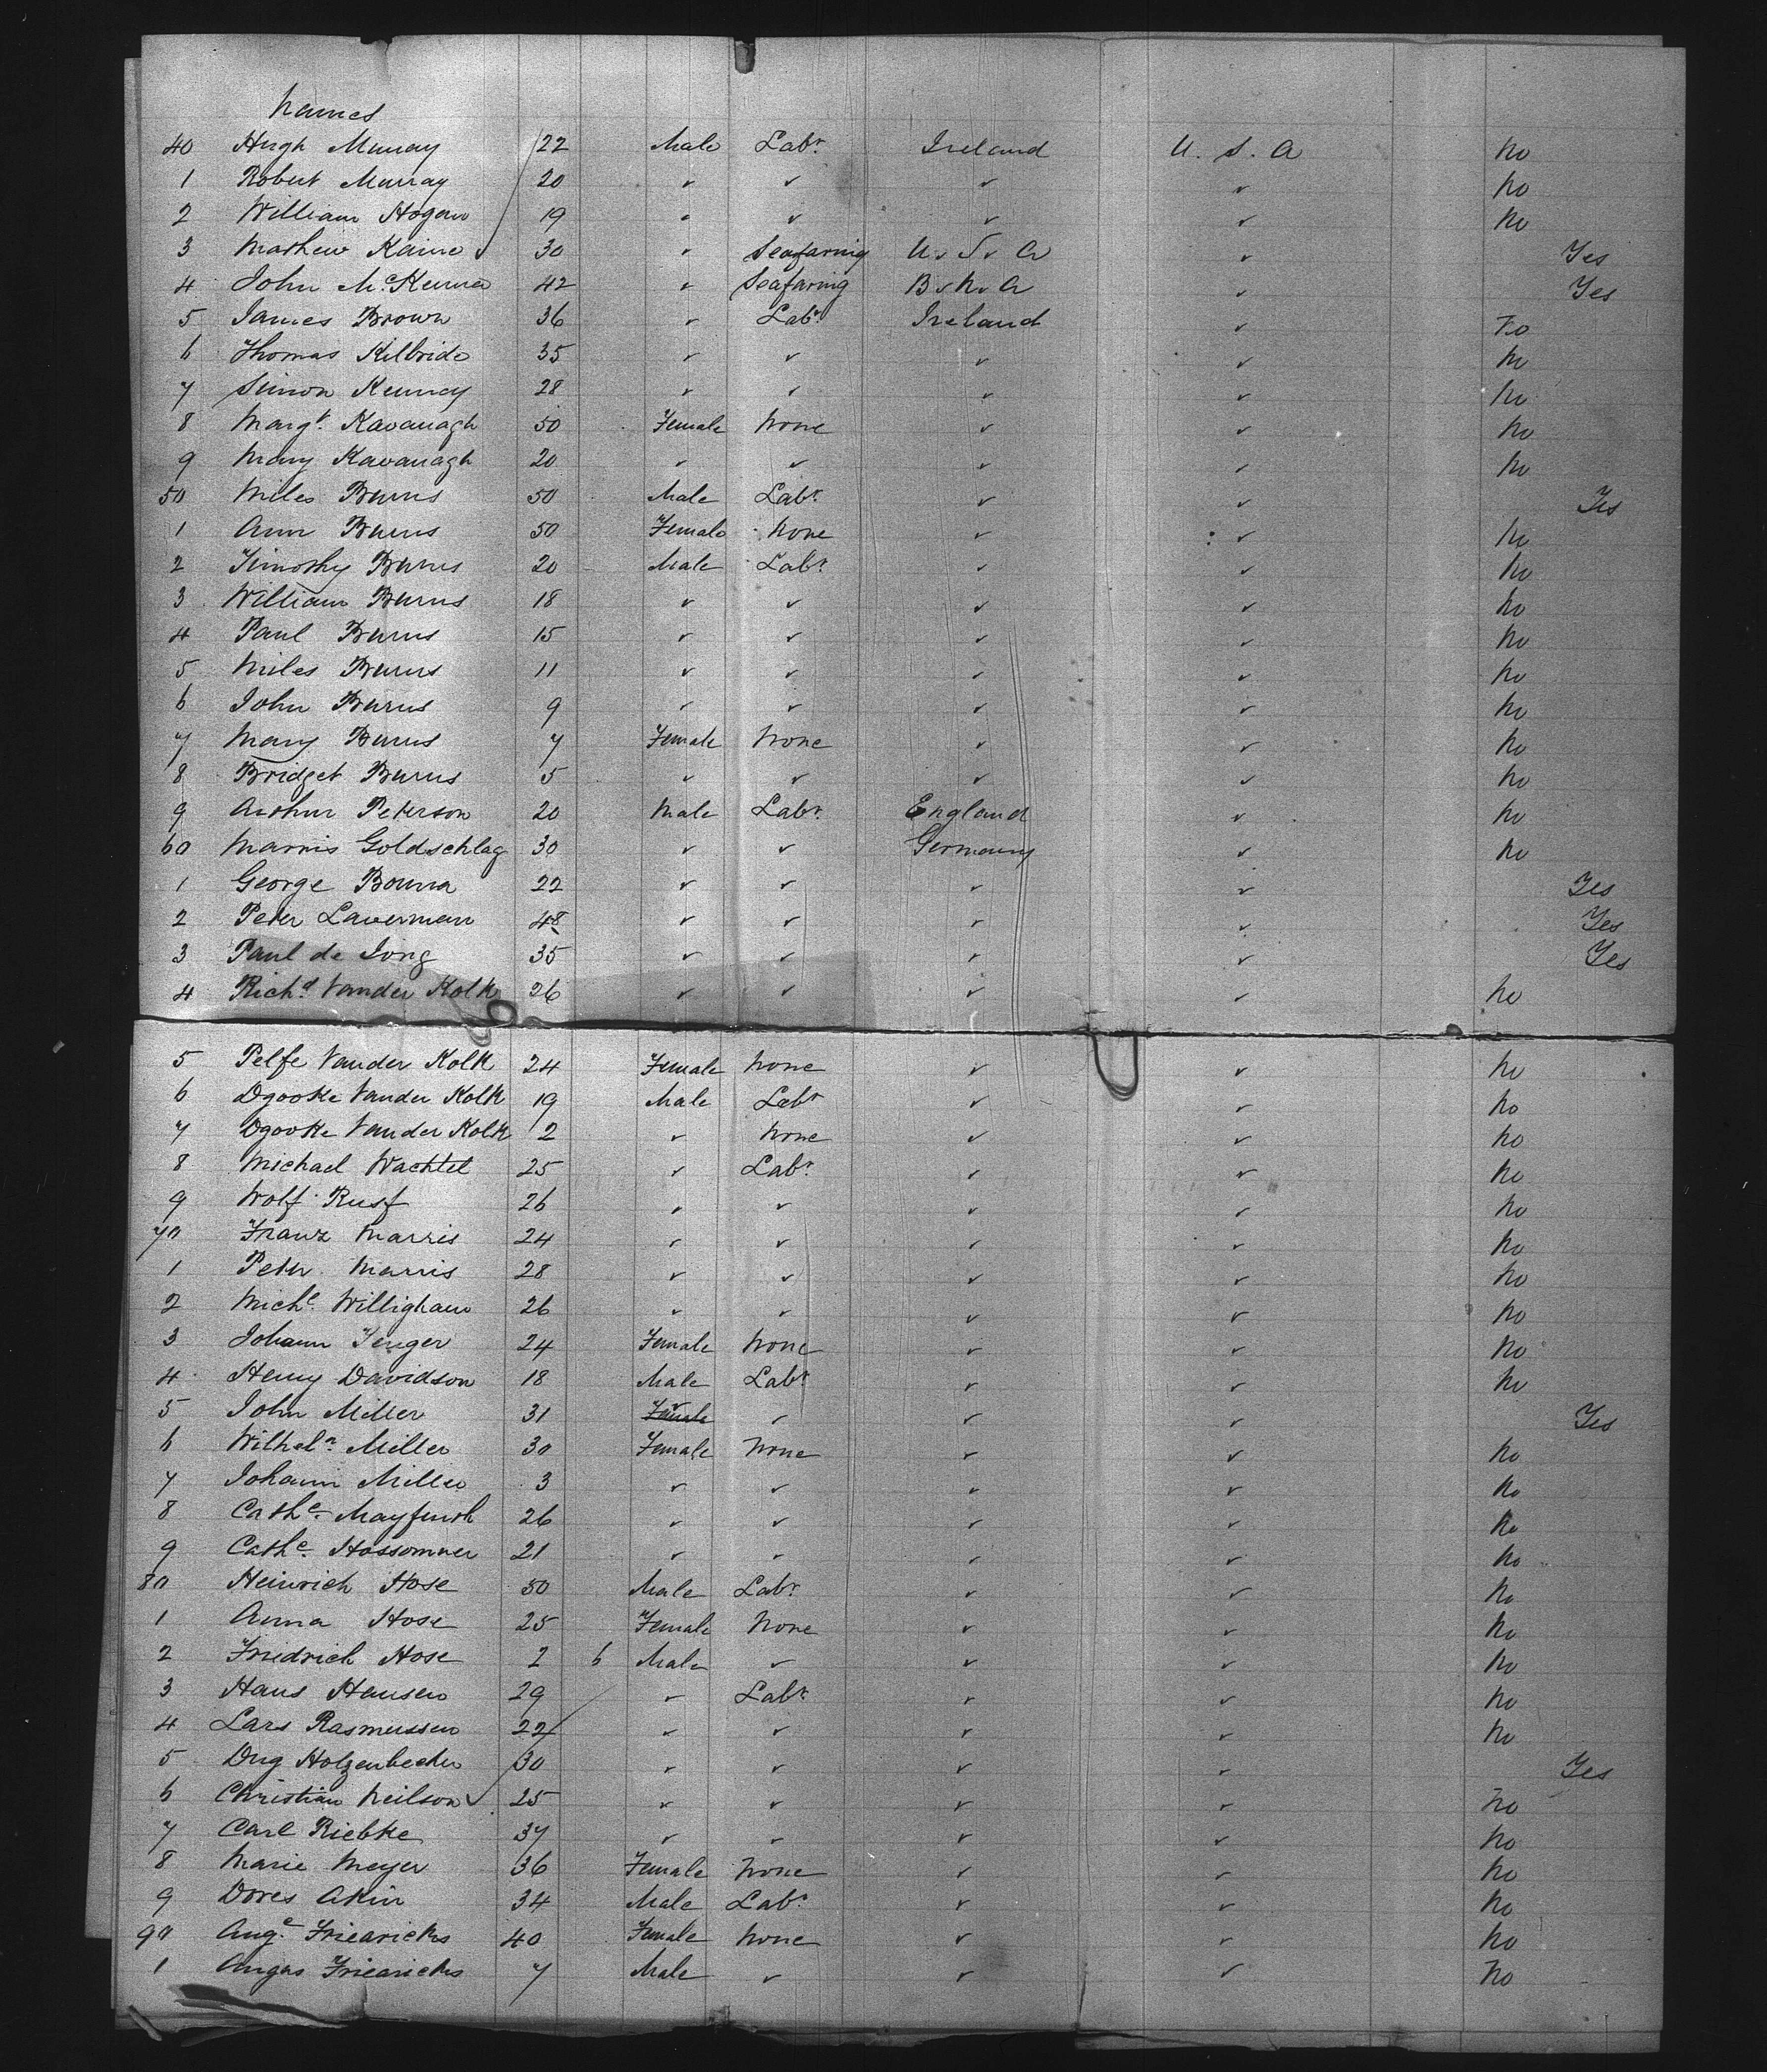 Names
40 Hugh Murray 22 Male Labr. Ireland U. S. A No
1 Robert Murray 20 ✓ ✓ ✓ ✓ No
2 William Hogan 19 ✓ ✓ ✓ ✓ No
3 Mathew Kaine 30 ✓ Seafaring U. S. A ✓ Yes
4 John McKenna 42 ✓ Seafaring B. N. A ✓ Yes
5 James Brown 36 ✓ Labr. Ireland ✓ No
6 Thomas Kilbride 35 ✓ ✓ ✓ ✓ No
7 Simon Kenney 28 ✓ ✓ ✓ ✓ No
8 Margt. Kavanagh 50 Female None ✓ ✓ No
9 Mary Kavanagh 20 ✓ ✓ ✓ ✓ No
50 Miles Burns 50 Male Labr. ✓ ✓ Yes
1 Ann Burns 50 Female None ✓ ✓ No
2 Timothy Burns 20 Male Labr. ✓ ✓ No
3 William Burns 18 ✓ ✓ ✓ ✓ No
4 Paul Burns 15 ✓ ✓ ✓ ✓ No
5 Miles Burns 11 ✓ ✓ ✓ ✓ No
6 John Burns 9 ✓ ✓ ✓ ✓ No
7 Mary Burns 7 Female None ✓ ✓ No
8 Bridget Burns 5 ✓ ✓ ✓ ✓ No
9 Arthur Peterson 20 Male Labr. England ✓ No
60 Marris Goldschlag 30 ✓ ✓ Germany ✓ No
1 George Bouma 22 ✓ ✓ ✓ ✓ Yes
2 Peter Laverman 48 ✓ ✓ ✓ ✓ Yes
3 Paul de Jong 35 ✓ ✓ ✓ ✓ Yes
4 Richd. Vander Kolk 26 ✓ ✓ ✓ ✓ No
5 Pelfe Vander Kolk 24 Female None ✓ ✓ No
6 Dgooke Vander Kolk 19 Male Labr ✓ ✓ No
7 Dgooke Vander Kolk 2 ✓ None ✓ ✓ No
8 Michael Wachtel 25 ✓ Labr. ✓ ✓ No
9 Wolf Rusf 26 ✓ ✓ ✓ ✓ No
70 Franz Marris 24 ✓ ✓ ✓ ✓ No
1 Peter Marris 28 ✓ ✓ ✓ ✓ No
2 Michl. Willigham 26 ✓ ✓ ✓ ✓ No
3 Johann Jenger 24 Female None ✓ ✓ No
4 Henry Davidson 18 Male Labr. ✓ ✓ No
5 John Miller 31 Female ✓ ✓ ✓ ✓ Yes
6 Wilhelm. Miller 30 Female None ✓ ✓ No
7 Johann Miller 3 ✓ ✓ ✓ ✓ No
8 Cathe. 26 ✓ ✓ ✓ ✓ No
9 Cathe. Hossomner 21 ✓ ✓ ✓ ✓ No
80 Heinrich Hose 50 Male Labr. ✓ ✓ No
1 Anna Hose 25 Female None ✓ ✓ No
2 Friedrich Hose 2 6 Male ✓ ✓ ✓ No
3 Hans Hansen 29 ✓ Labr. ✓ ✓ No
4 Lars Rasmussen 22 ✓ ✓ ✓ ✓ No
5 Holzenbecher 30 ✓ ✓ ✓ ✓ Yes
6 Christian Neilson 25 ✓ ✓ ✓ ✓ No
7 Carl Riebke 37 ✓ ✓ ✓ ✓ No
8 Marie Meyer 36 Female None ✓ ✓ No
9 Dores Akin 34 Male Labr. ✓ ✓ No
90 Auge. Friearicks 40 Female None ✓ ✓ No
1 Angas Friearicks 7 Male ✓ ✓ ✓ No